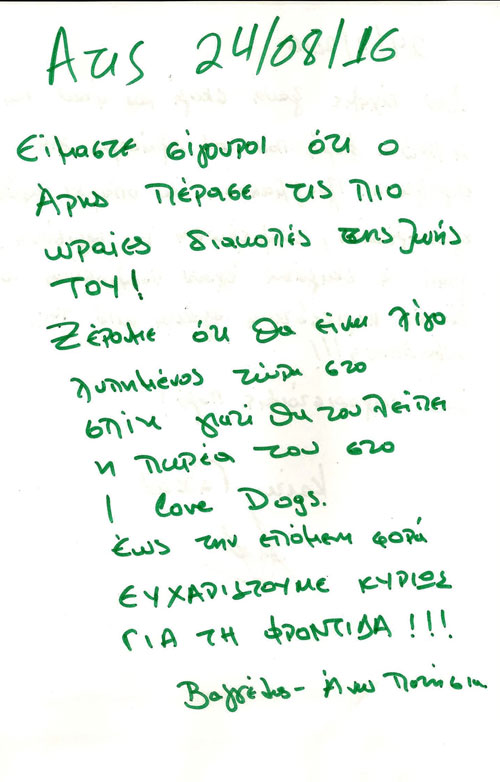 Άρης 24/08/16
Είμαστε σίγουροι ότι ο
Άρης πέρασε τις πιο
ωραίες διακοπές της ζωής
του!
Ξέρουμε ότι θα είναι λίγο
λυπημένος τώρα στο
σπίτι γιατί θα του λείπει
η παρέα του στο
I Love Dogs.
Έως την επόμενη φορά
ΕΥΧΑΡΙΣΤΟΥΜΕ ΚΥΡΙΩΣ
ΓΙΑ ΤΗ ΦΡΟΝΤΙΔΑ!!!
Βαγγέλης -